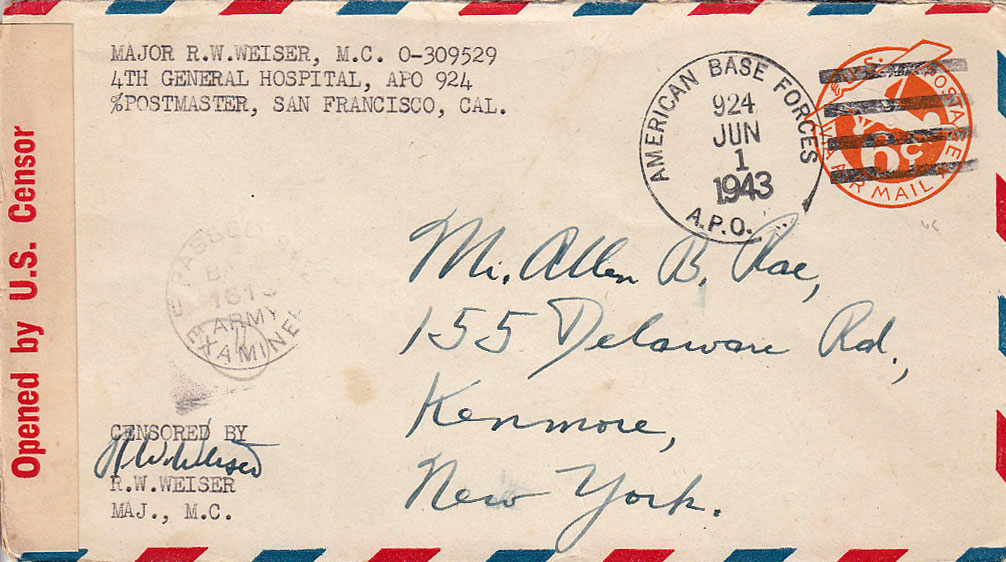 MAJOR R.W.WEISER, M.C. O-309529
4TH GENERAL HOSPITAL, APO 924
%POSTMASTER, SAN FRANCISCO, CAL.
AMERICAN BASE FORCES
924
JUN
1
1943
A.P.O.
U.S. POSTAGE
6¢
VIA AIR MAIL
Opened by U.S. Censor
Mr. Allen B. Rae,
155 Delaware Rd.,
Kenmore,
New York.
PASSED
ARMY
EXAMINER
CENSORED BY
R.W.Weiser
R.W.WEISER
MAJ., M.C.